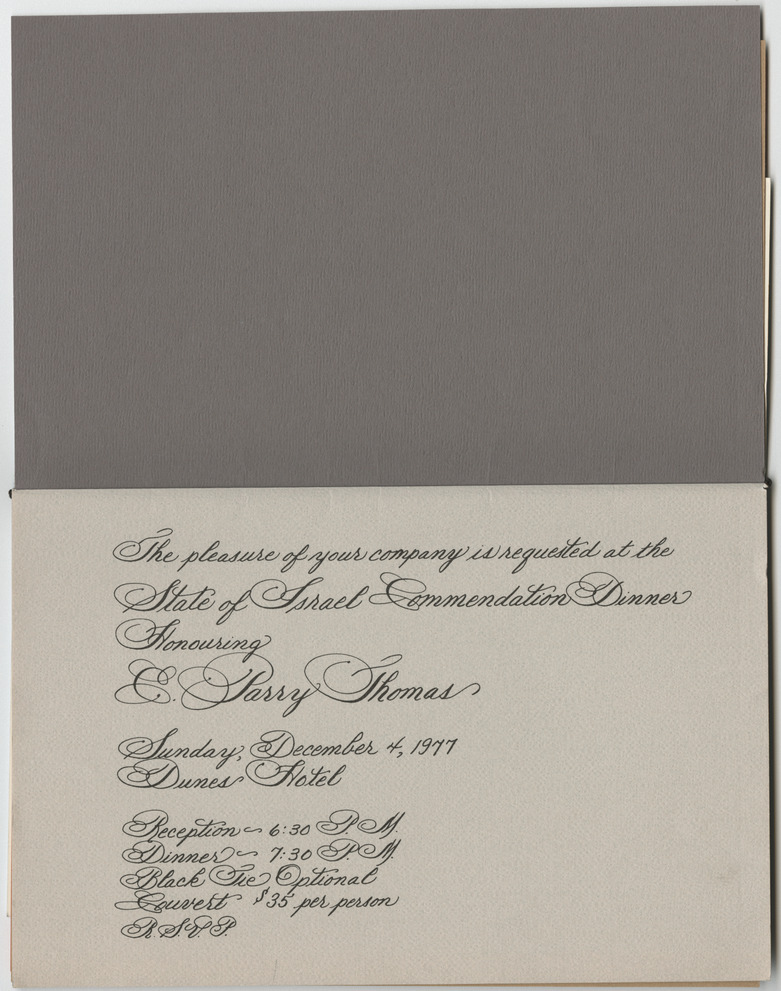 The pleasure of your company is requested at the
State of Israel Commendation Dinner
Honouring
E. Parry Thomas
Sunday, December 4, 1977
Dunes Hotel
Reception ~ 6:30 P.M.
Dinner ~ 7:30 P.M.
Black Tie Optional
Couvert $35 per person
R.S.V.P.